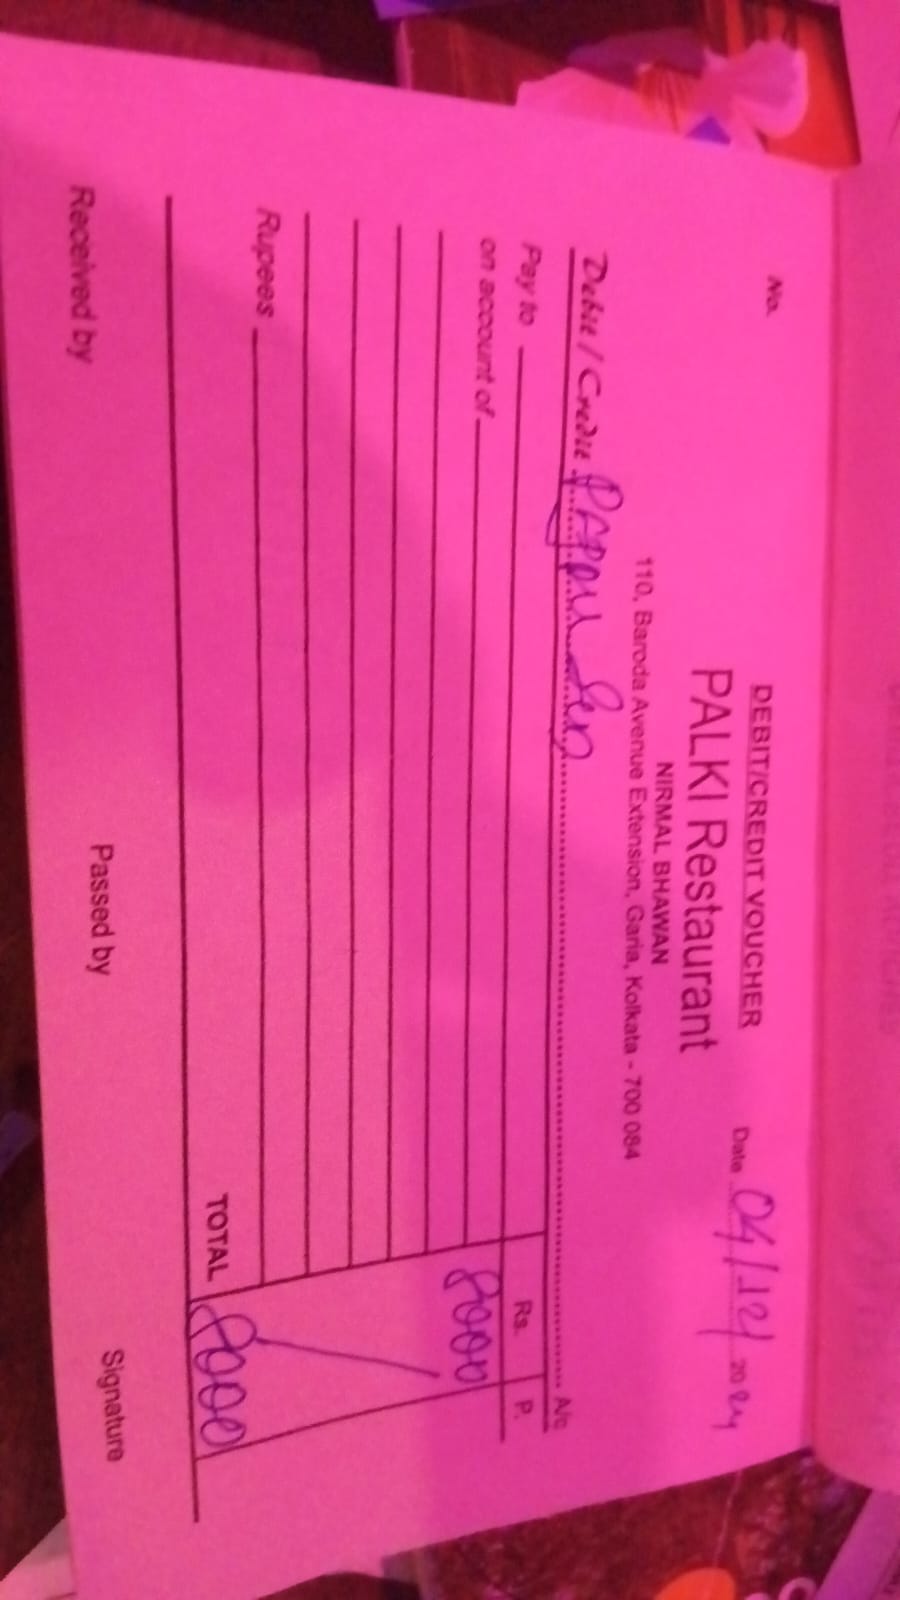 No.
DEBIT/CREDIT VOUCHER
Date 04/12/2024
PALKI Restaurant
NIRMAL BHAWAN
110, Baroda Avenue Extension, Garia, Kolkata - 700 084
Debit / Credit Pappu Sen A/c
Pay to Rs. P.
on account of 8000
Rupees
TOTAL 8000
Received by Passed by Signature